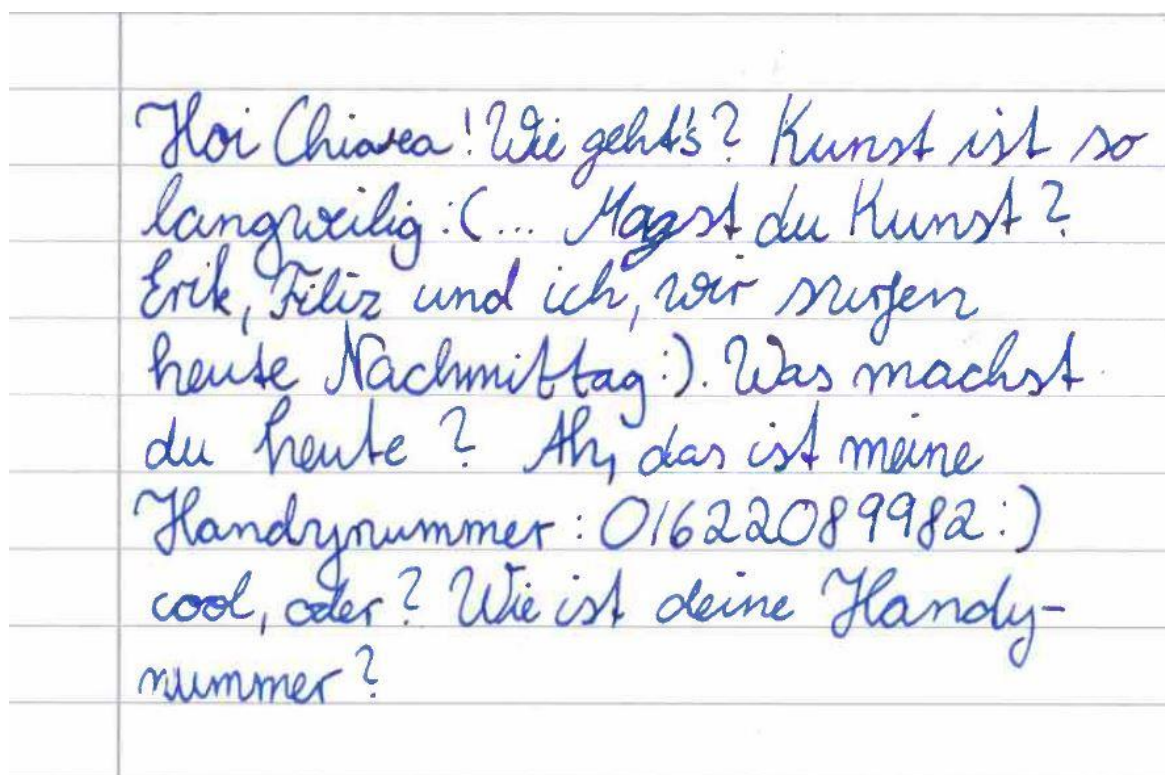 Hoi Chiara! Wie geht's? Kunst ist so
langweilig :(... Magst du Kunst?
Erik, Filiz und ich, wir surfen
heute Nachmittag :). Was machst
du heute? Ah, das ist meine
Handynummer: 01622089982 :)
cool, oder? Wie ist deine Handy-
nummer?